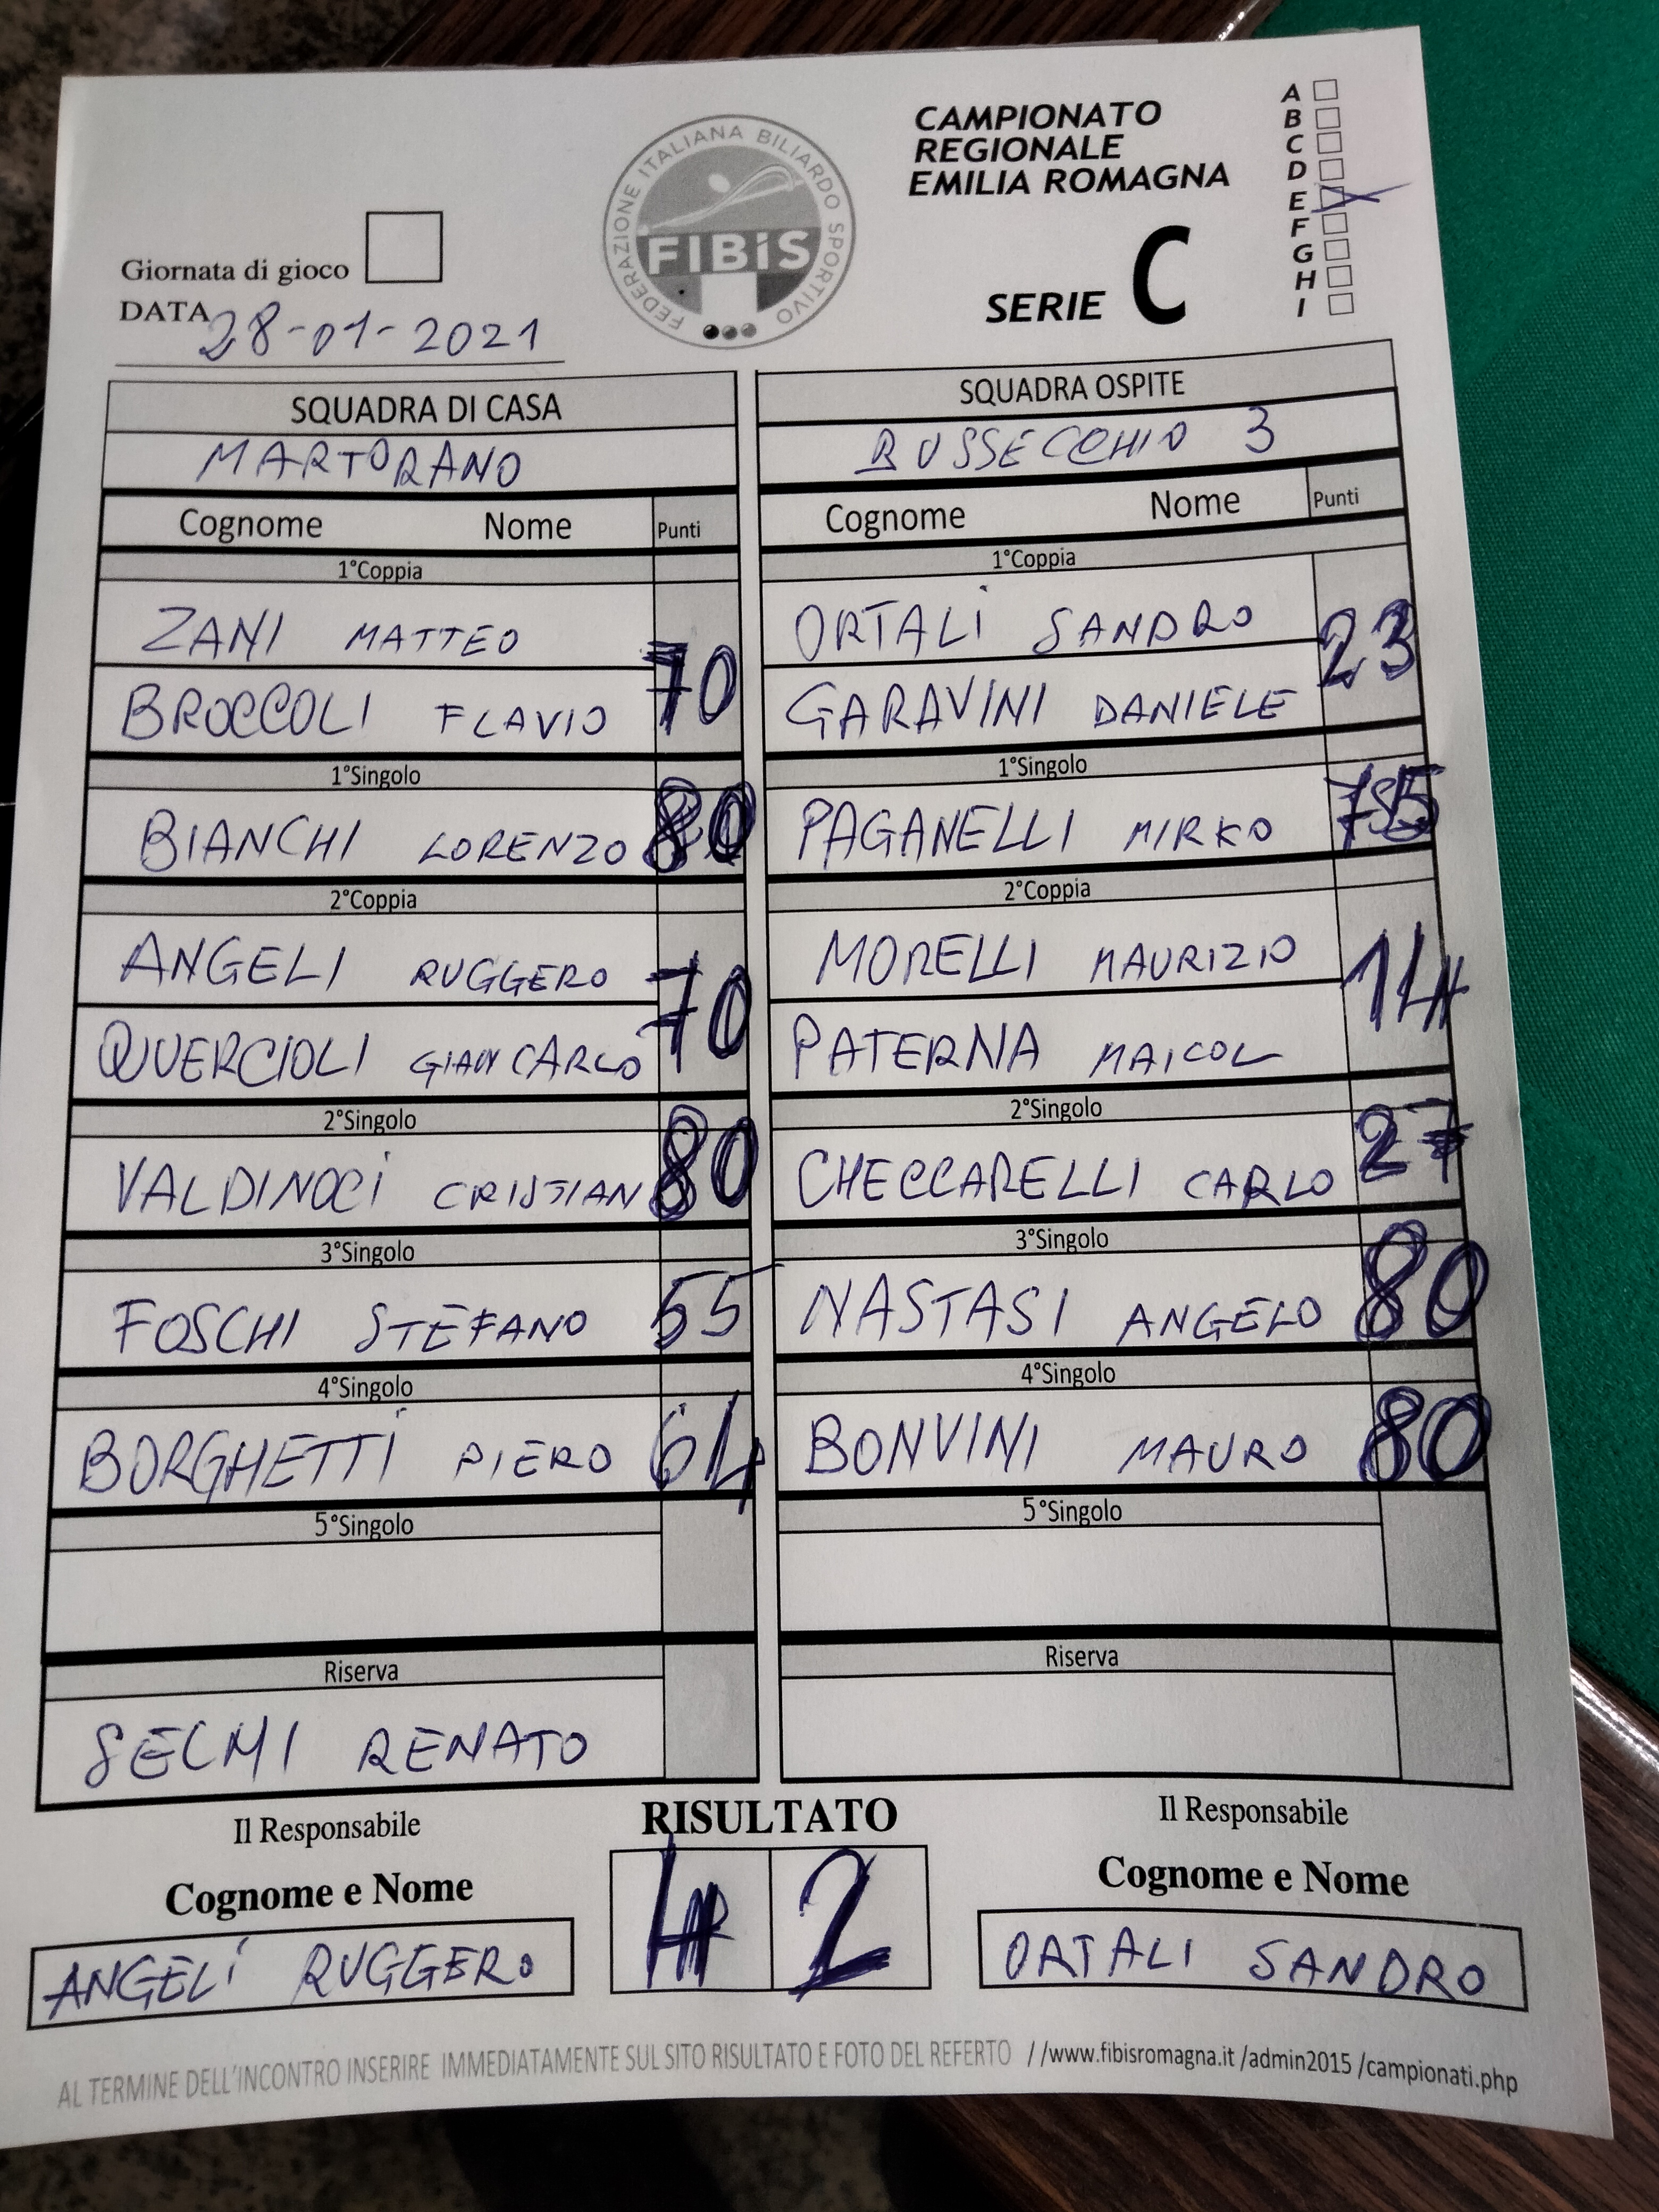 CAMPIONATO
REGIONALE
EMILIA ROMAGNA
SERIE C
A
B
C
D
E
F
G
H
I
FEDERAZIONE ITALIANA BILIARDO SPORTIVO
FIBiS
Giornata di gioco
DATA 28-01-2021
SQUADRA DI CASA SQUADRA OSPITE
MARTORANO BUSSECCHIO 3
Cognome Nome Punti Cognome Nome Punti
1°Coppia 1°Coppia
ZANI MATTEO 70 ORTALI SANDRO 23
BROCCOLI FLAVIO GARAVINI DANIELE
1°Singolo 1°Singolo
BIANCHI LORENZO 80 PAGANELLI MIRKO
2°Coppia 2°Coppia
ANGELI RUGGERO 70 MORELLI MAURIZIO 14
QUERCIOLI GIANCARLO PATERNA MAICOL
2°Singolo 2°Singolo
VALDINOCI CRISTIAN 80 CHECCARELLI CARLO 27
3°Singolo 3°Singolo
FOSCHI STEFANO 55 NASTASI ANGELO 80
4°Singolo 4°Singolo
BORGHETTI PIERO 64 BONVINI MAURO 80
5°Singolo 5°Singolo
Riserva Riserva
SELMI RENATO
Il Responsabile RISULTATO Il Responsabile
Cognome e Nome 4 2 Cognome e Nome
ANGELI RUGGERO ORTALI SANDRO
AL TERMINE DELL'INCONTRO INSERIRE IMMEDIATAMENTE SUL SITO RISULTATO E FOTO DEL REFERTO //www.fibisromagna.it /admin2015 /campionati.php